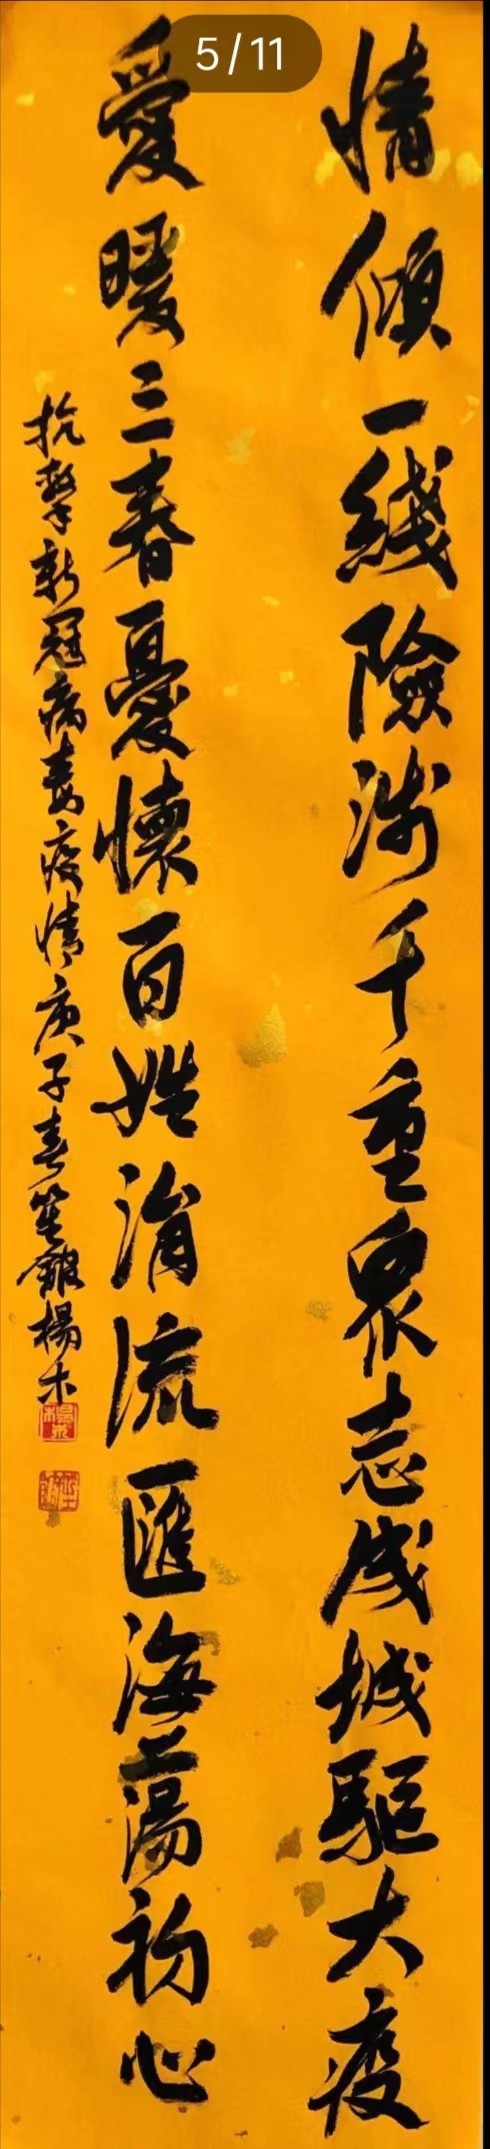 5/11
情傾一綫險涉千重衆志成城驅大疫
愛暖三春憂懷百姓涓流匯海蕩初心
抗擊新冠病毒疫情庚子春笙館楊木